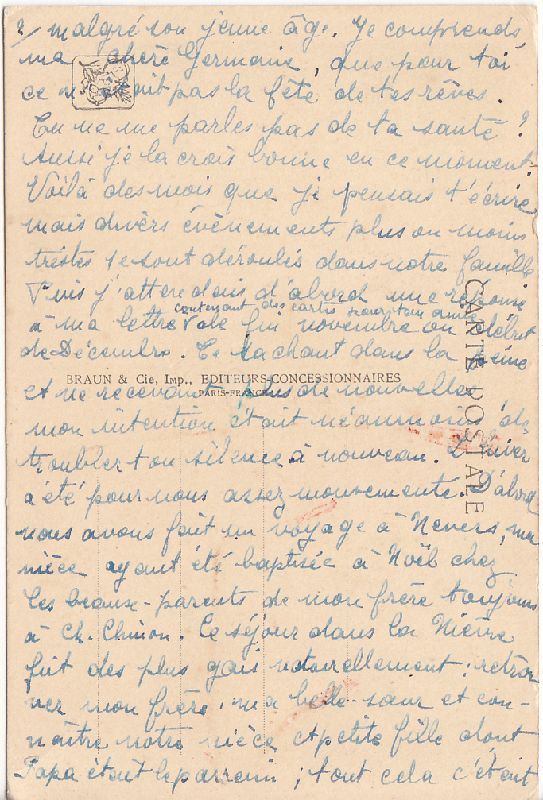 2/ malgré son jeune âge. Je comprends,
ma chère Germaine, que pour toi
ce n' soit pas la fête de tes rêves.
Tu ne me parles pas de ta santé ?
Aussi je la crois bonne en ce moment.
Voilà des mois que je pensais t'écrire
mais divers évènements plus ou moins
tristes se sont déroulés dans notre famille
Puis j'attendais d'abord une réponse
contenant des cartes
à ma lettre de fin novembre ou début
de Décembre. Te sachant dans la peine
BRAUN & Cie, Imp., EDITEURS-CONCESSIONNAIRES
PARIS-FRANCE
et ne recevant plus de nouvelles
mon intention était néanmoins de
troubler ton silence à nouveau. L'hiver
a été pour nous assez mouvementé. D'abord
nous avons fait un voyage à Nevers, ma
nièce ayant été baptisée à Noël chez
les beaux-parents de mon frère toujours
à Ch. Chinon. Le séjour dans la Nièvre
fut des plus gais naturellement : retrou-
ver mon frère, ma belle-sœur et con-
naître notre nièce et petite fille dont
Papa était le parrain ; tout cela c'était
CARTE POSTALE